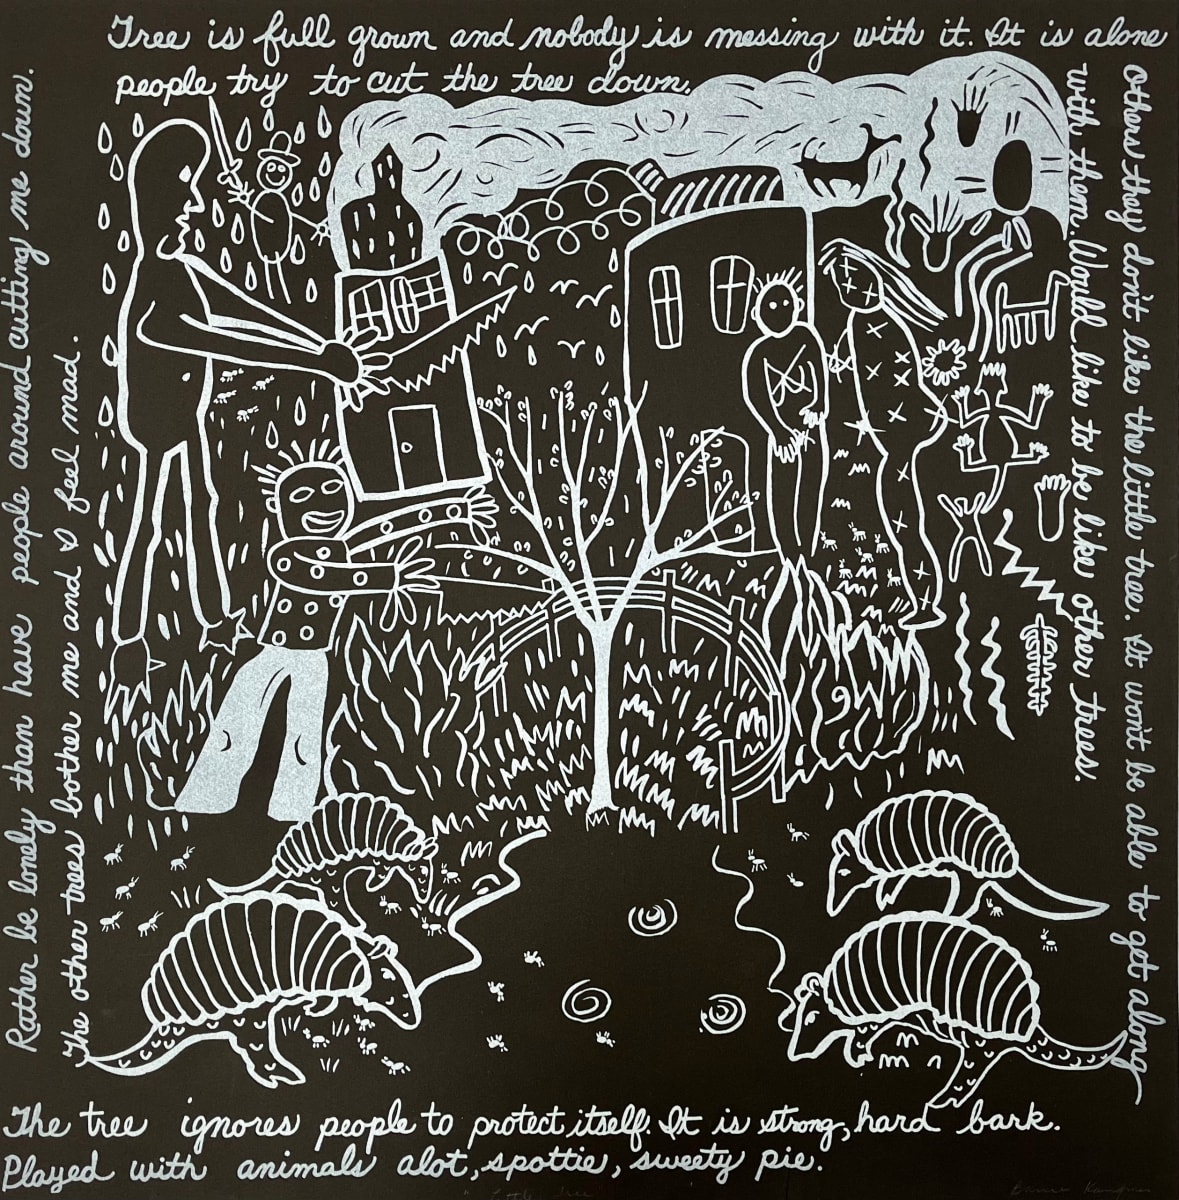 Tree is full grown and nobody is messing with it. It is alone
people try to cut the tree down.
others they don't like the little tree. It won't be able to get along
with them. Would like to be like other trees.
The tree ignores people to protect itself. It is strong, hard bark.
Played with animals alot, spottie, sweety pie.
Rather be lonely than have people around cutting me down.
The other trees bother me and I feel mad.